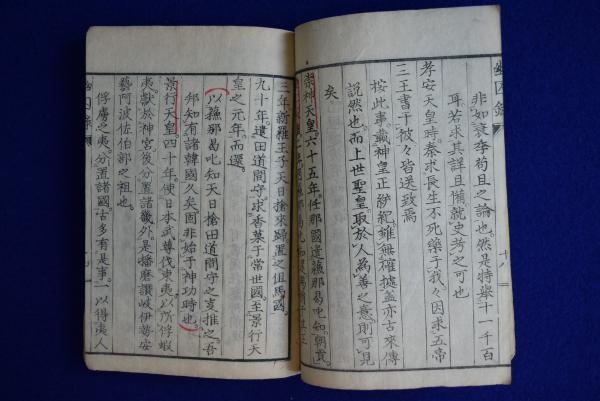 幽囚錄
非如袁李苟且之論也。然是特舉十一千百
耳若求其詳且備就史考之可也
孝安天皇時。秦求長生不死藥于我々因求五帝
三王書于彼々皆送致焉
按此事載神皇正統紀雖無確據蓋亦古來傳
說然也。而上世聖皇取於人為善之意則可見
矣
崇神天皇六十五年任那國遣蘓那曷叱知。朝貢。
三年新羅王子天日槍來歸置之但馬國。
九十年。遣田道間守求香菓子常世國至景行天
皇之元年。而還。
以蘓那曷叱知天日槍田道間守之支推之。吾
邦知有諸韓國久矣固非始于神功時也。
景行天皇四十年。使日本武尊伐東夷。以所俘蝦
夷。獻於神宮後分置諸畿外是播磨讚岐伊勢安
藝阿波佐伯部之祖也。
俘虜之夷。分置諸國古多有是事。一以得夷人
幽囚錄